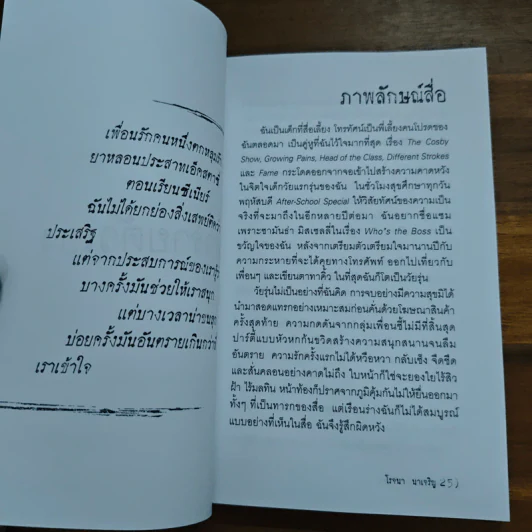 เพื่อนรักคนหนึ่งตกหลุมรัก
ยาหลอนประสาทเอ็คสตาซี
ตอนเรียนซีเนียร์
ฉันไม่ได้ยกย่องสิ่งเสพย์ติดว่า
ประเสริฐ
แต่จากประสบการณ์ของเรา
บางครั้งมันช่วยให้เราสนุก
แต่บางเวลา
บ่อยครั้งมันอันตรายเกินกว่าที่
เราเข้าใจ
ภาพลักษณ์สื่อ
ฉันเป็นเด็กที่สื่อเลี้ยง โทรทัศน์เป็นพี่เลี้ยงคนโปรดของ
ฉันตลอดมา เป็นคู่หูที่ฉันไว้ใจมากที่สุด เรื่อง The Cosby
Show, Growing Pains, Head of the Class, Different Strokes
และ Fame กระโดดออกจากจอเข้าไปสร้างความคาดหวัง
ในจิตใจเด็กวัยแรกรุ่นของฉัน ในชั่วโมงสุขศึกษาทุกวัน
พฤหัสบดี After-School Special ให้วิสัยทัศน์ของความเป็น
จริงที่จะมาถึงในอีกหลายปีต่อมา ฉันอยากชื่อแซม
เพราะซามันธ่า มิสเซลลี่ในเรื่อง Who's the Boss เป็น
ขวัญใจของฉัน หลังจากเตรียมตัวเตรียมใจมานานปีกับ
ความกระหายที่จะได้คุยทางโทรศัพท์ ออกไปเที่ยวกับ
เพื่อนๆ และเขียนตาทาคิ้ว ในที่สุดฉันก็โตเป็นวัยรุ่น
วัยรุ่นไม่เป็นอย่างที่ฉันคิด การจบอย่างมีความสุขมิได้
นำมาสอดแทรกอย่างเหมาะสมก่อนคั่นด้วยโฆษณาสินค้า
ครั้งสุดท้าย ความกดดันจากกลุ่มเพื่อนชี้ไม่มีที่สิ้นสุด
ปาร์ตี้แบบหัวหกก้นขวิดสร้างความสนุกสนานจนลืม
อันตราย ความรักครั้งแรกไม่ได้หวือหวา กลับเซ็ง จืดชืด
และสั่นคลอนอย่างคาดไม่ถึง ใบหน้าก็ใช่จะยองใยไร้สิว
ฝ้า ไร้มลทิน หน้าท้องก็ปราศจากภูมิคุ้มกันไม่ให้ยื่นออกมา
ทั้งๆ ที่เป็นทารกของสื่อ แต่เรือนร่างฉันก็ไม่ได้สมบูรณ์
แบบอย่างที่เห็นในสื่อ ฉันจึงรู้สึกผิดหวัง
โรจนา นาเจริญ 257